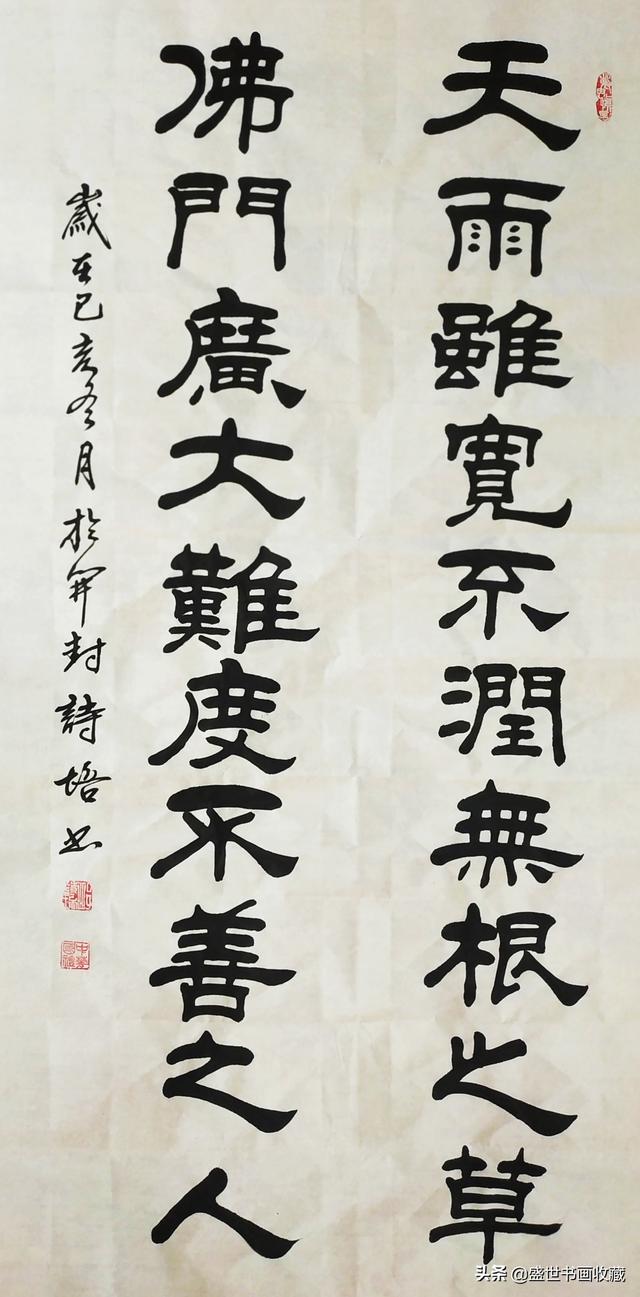 天雨雖寬不潤無根之草
佛門廣大難度不善之人
歲在己亥冬月於開封詩培书
头条@盛世书画收藏